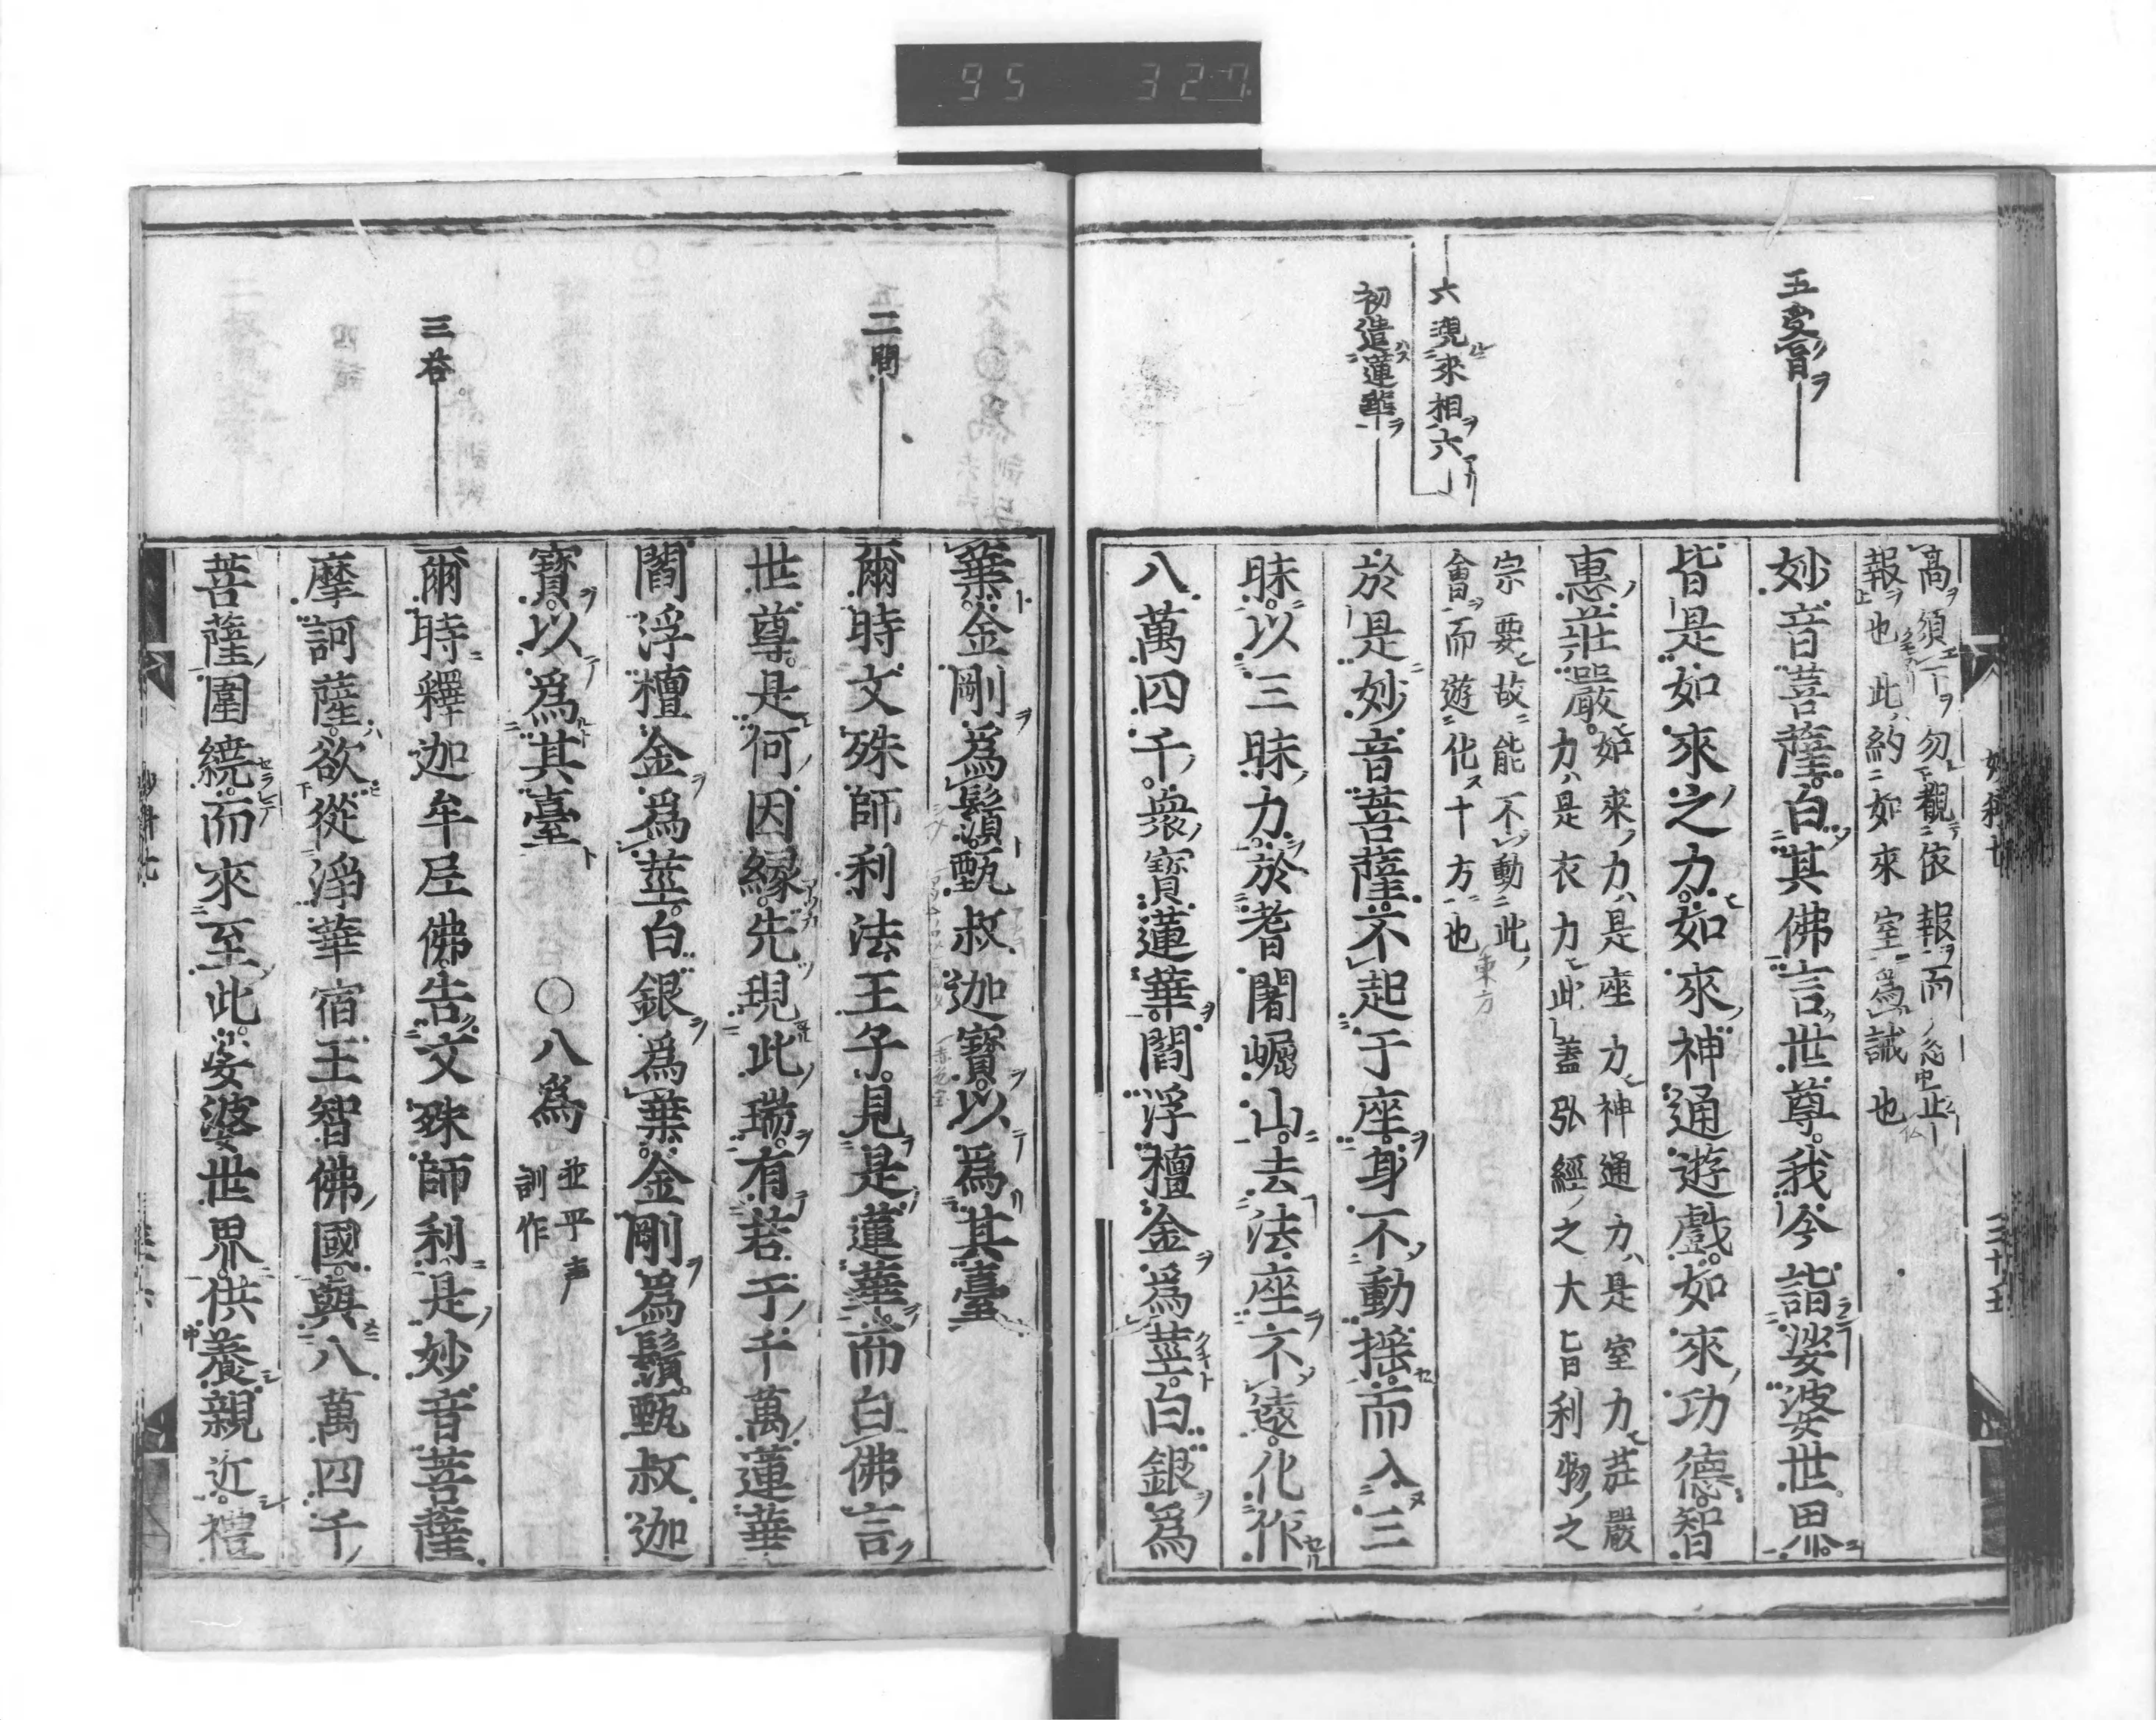 95 327
五受旨
六現來相六
初遣蓮華
高須一一勿觀依報而忽中止
報也此約如來室爲誡也
妙音菩薩白其佛言世尊我今詣娑婆世界
皆是如來之力如來神通遊戲如來功德智
惠莊嚴如來力是座力神通力是室力莊嚴
力是衣力此蓋弘經之大旨利物之
宗要故能不動此
會而遊化十方也
東方
於是妙音菩薩不起于座身不動搖而入三
昧以三昧力於耆闍崛山去法座不遠化作
八萬四千衆寶蓮華閻浮檀金爲莖白銀爲
二問
三答
葉金剛爲鬚甄叔迦寶以爲其臺
爾時文殊師利法王子見是蓮華而白佛言
世尊是何因緣先現此瑞有若干千萬蓮華
閻浮檀金爲莖白銀爲葉金剛爲鬚甄叔迦
寶以爲其臺 〇八爲 並平声
訓作
爾時釋迦牟尼佛告文殊師利是妙音菩薩
摩訶薩欲從淨華宿王智佛國與八萬四千
菩薩圍繞而來至此娑婆世界供養親近禮